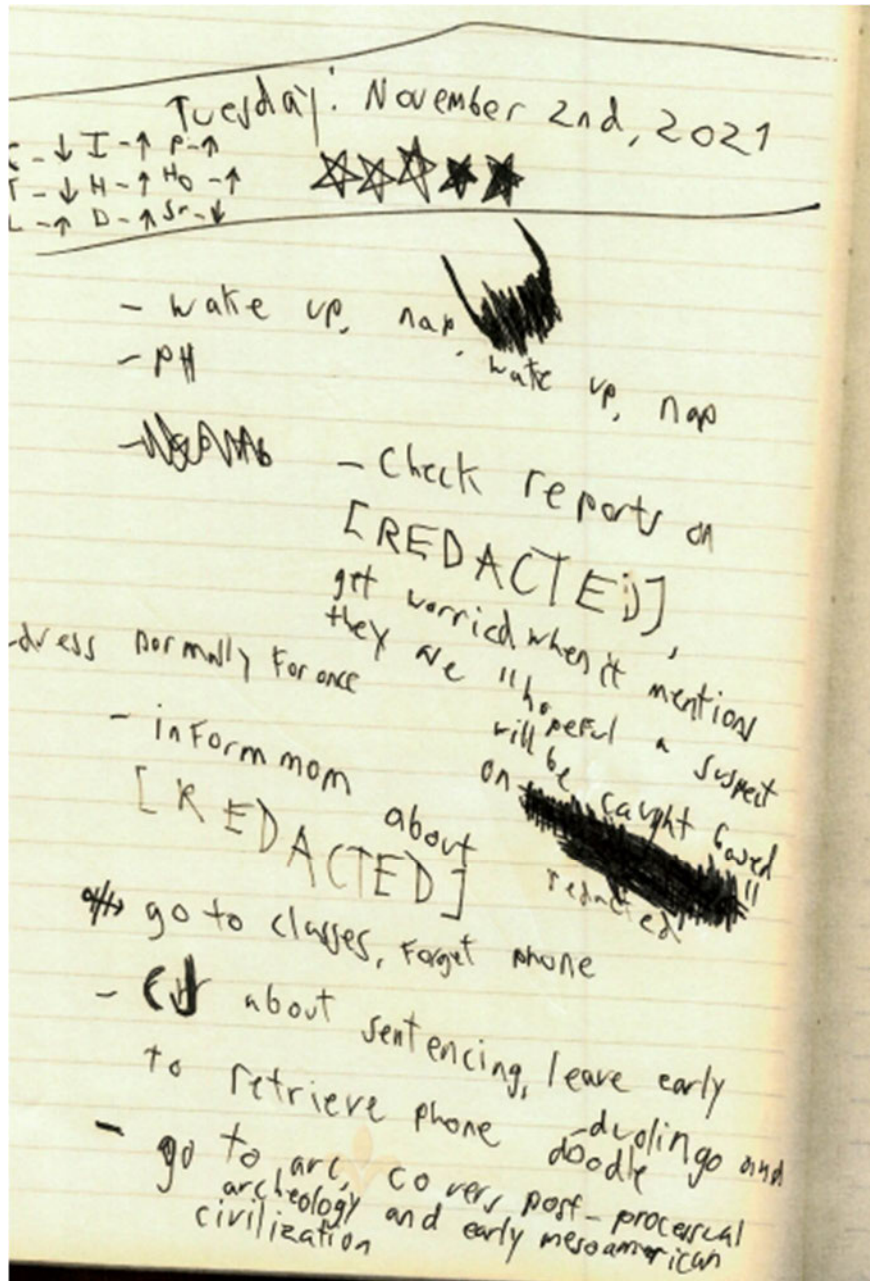 Tuesday: November 2nd, 2021
- ↓ I - ↑ P - ↑
- ↓ H - ↑ Ho - ↑
L - ↑ D - ↑ Sr - ↓
- wake up, nap, wake up, nap
- PH
- Check reports on
[REDACTED],
get worried when it mentions
they are "hopeful a suspect
will be caught based
on
redacted"
- dress normally for once
- inform mom about
[REDACTED]
go to classes, forget phone
- about sentencing, leave early
to retrieve phone
- duolingo and
doodle
- go to arc, covers post-processual
archeology and early mesoamerican
civilization